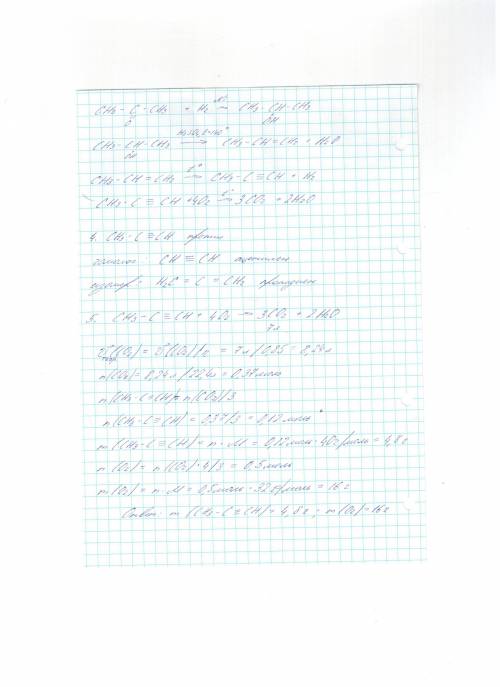 CH3 - C - CH3 + H2 → CH3 - CH - CH3
O OH
CH3 - CH - CH3 H2SO4, t>140° → CH3 - CH = CH2 + H2O
OH
CH3 - CH = CH2 t° → CH3 - C ≡ CH + H2
CH3 - C ≡ CH + 4O2 t° → 3CO2 + 2H2O
4. CH3 - C ≡ CH пропин
гомолог: CH ≡ CH ацетилен
изомер: H2C = C = CH2 пропадиен
5. CH3 - C ≡ CH + 4O2 → 3CO2 + 2H2O
7л
V теор (CO2) = V(CO2)/η = 7л/0,85 = 8,24л
n(CO2) = 8,24л/22,4л = 0,37моль
n(CH3 - C ≡ CH) = n(CO2)/3
n(CH3 - C ≡ CH) = 0,37/3 = 0,12 моль
m(CH3 - C ≡ CH) = n · M = 0,12моль · 40г/моль = 4,8г
n(O2) = n(CO2) · 4/3 = 0,5моль
m(O2) = n · M = 0,5моль · 32г/моль = 16г
Ответ: m(CH3 - C ≡ CH) = 4,8г; m(O2) = 16г